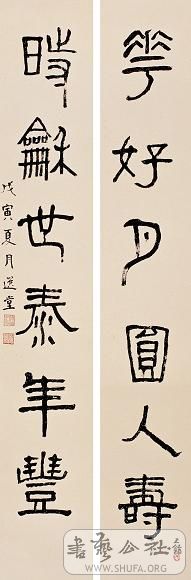 華好月圓人壽
時龢世泰年豐
戊寅夏月選堂
書藝公社
WWW.SHUFA.ORG